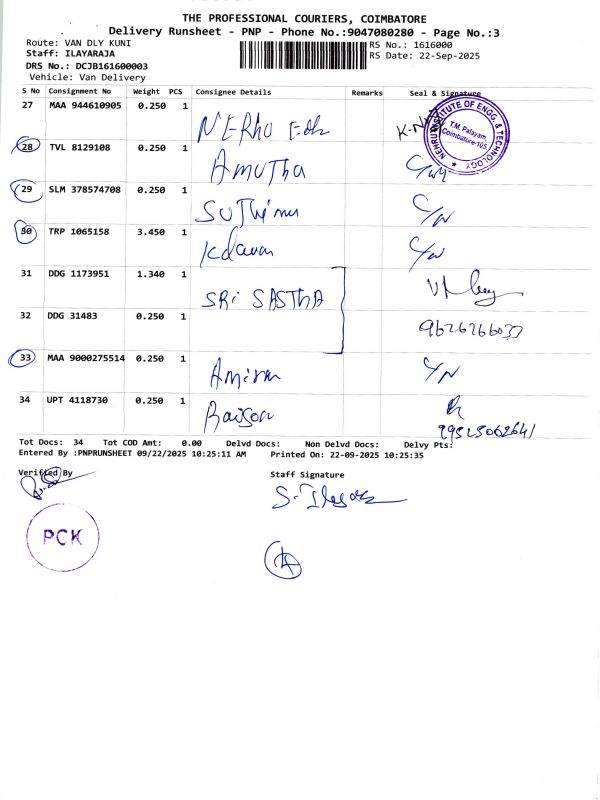 THE PROFESSIONAL COURIERS, COIMBATORE
Delivery Runsheet - PNP - Phone No.:9047080280 - Page No.:3
Route: VAN DLY KUNI
RS No.: 1616000
Staff: ILAYARAJA
RS Date: 22-Sep-2025
DRS No.: DCJB161600003
Vehicle: Van Delivery
S No Consignment No Weight PCS Consignee Details Remarks Seal & Signature
27 MAA 944610905 0.250 1 NERHU
NEHRU INSTITUTE OF ENGG. & TECHNOLOGY
T.M. Palayam,
Coimbatore-105.
28 TVL 8129108 0.250 1 AMUTHA
29 SLM 378574708 0.250 1 C/N
30 TRP 1065158 3.450 1 C/N
31 DDG 1173951 1.340 1 SRI SASTHA
32 DDG 31483 0.250 1 9626266037
33 MAA 9000275514 0.250 1 C/N
34 UPT 4118730 0.250 1
Tot Docs: 34 Tot COD Amt: 0.00 Delvd Docs: Non Delvd Docs: Delvy Pts:
Entered By :PNPRUNSHEET 09/22/2025 10:25:11 AM Printed On: 22-09-2025 10:25:35
Verified By Staff Signature
PCK